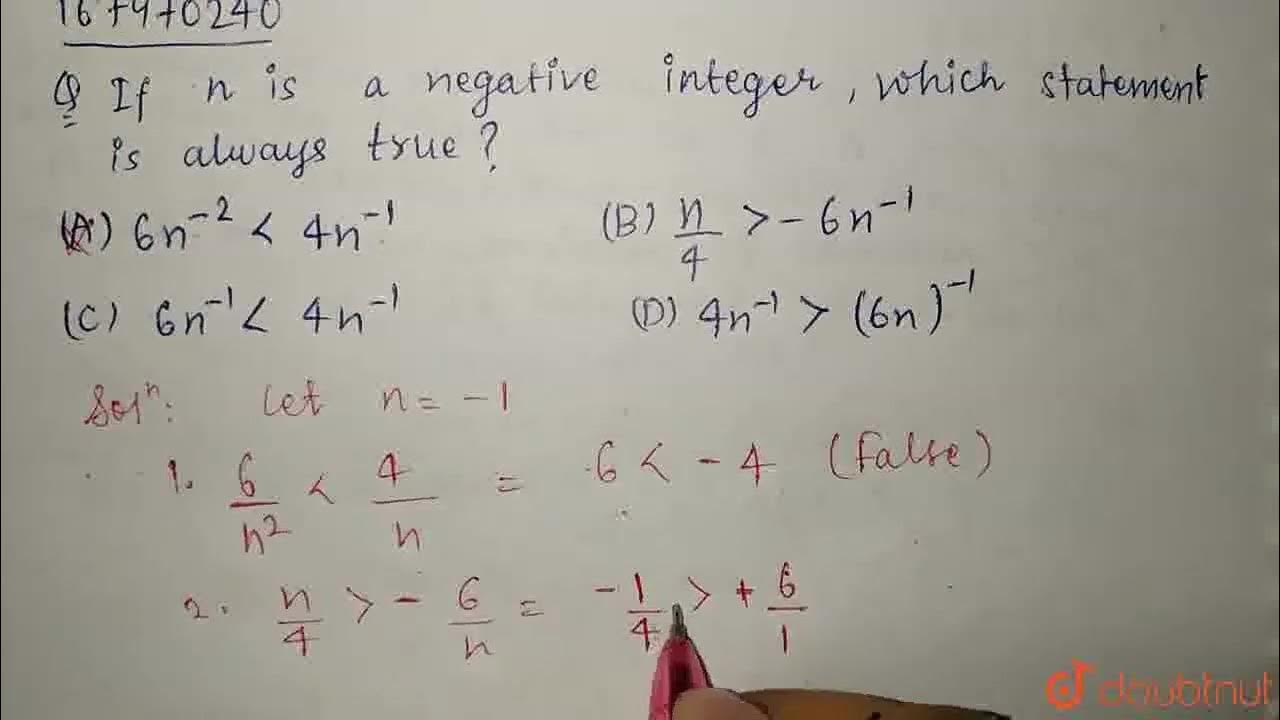 Q If n is a negative integer, which statement
is always true?
(A) 6n⁻² < 4n⁻¹ (B) n/4 > -6n⁻¹
(C) 6n⁻¹ < 4n⁻¹ (D) 4n⁻¹ > (6n)⁻¹
Solⁿ: Let n = -1
1. 6/n² < 4/n = 6 < -4 (False)
2. n/4 > - 6/n = -1/4 > + 6/1
doubtnut